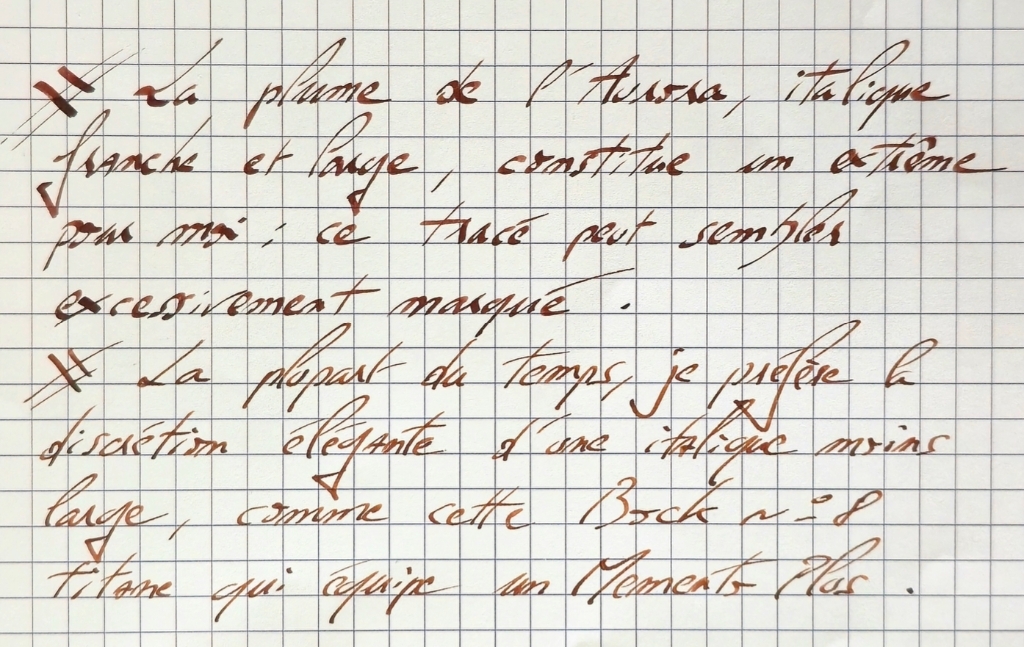 # La plume de l'Aurora, italique
franche et large, constitue un extrême
pour moi : ce tracé peut sembler
excessivement marqué.
# La plupart du temps, je préfère la
discrétion élégante d'une italique moins
large, comme cette Bock n° 8
titane qui équipe un Momento Plus.